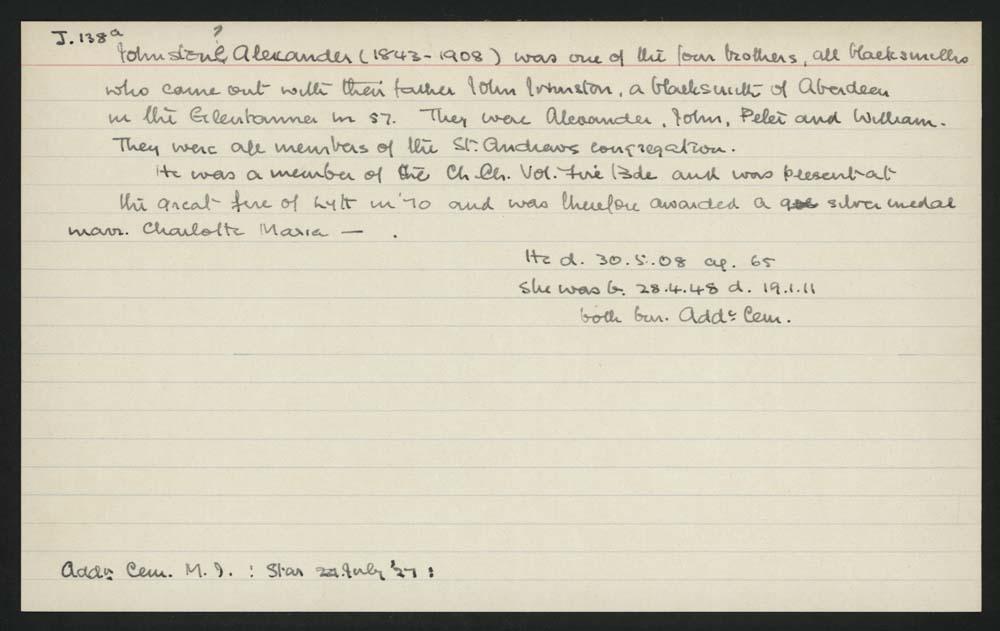 J.138a
?
Johnstone, Alexander (1843-1908) was one of the four brothers, all blacksmiths
who came out with their father John Johnston, a blacksmith of Aberdeen
in the Glentanner in 57. They were Alexander, John, Peter and William.
They were all members of the St. Andrews congregation.
He was a member of the Ch.Ch. Vol. Fire Bde and was present at
the great fire of Lytt in '70 and was therefore awarded a silver medal
marr. Charlotte Maria — .
He d. 30.5.08 ag. 65
She was b. 28.4.48 d. 19.1.11
both bur. Addn Cem.
Addn Cem. M.I. : Star 22 July '27 :